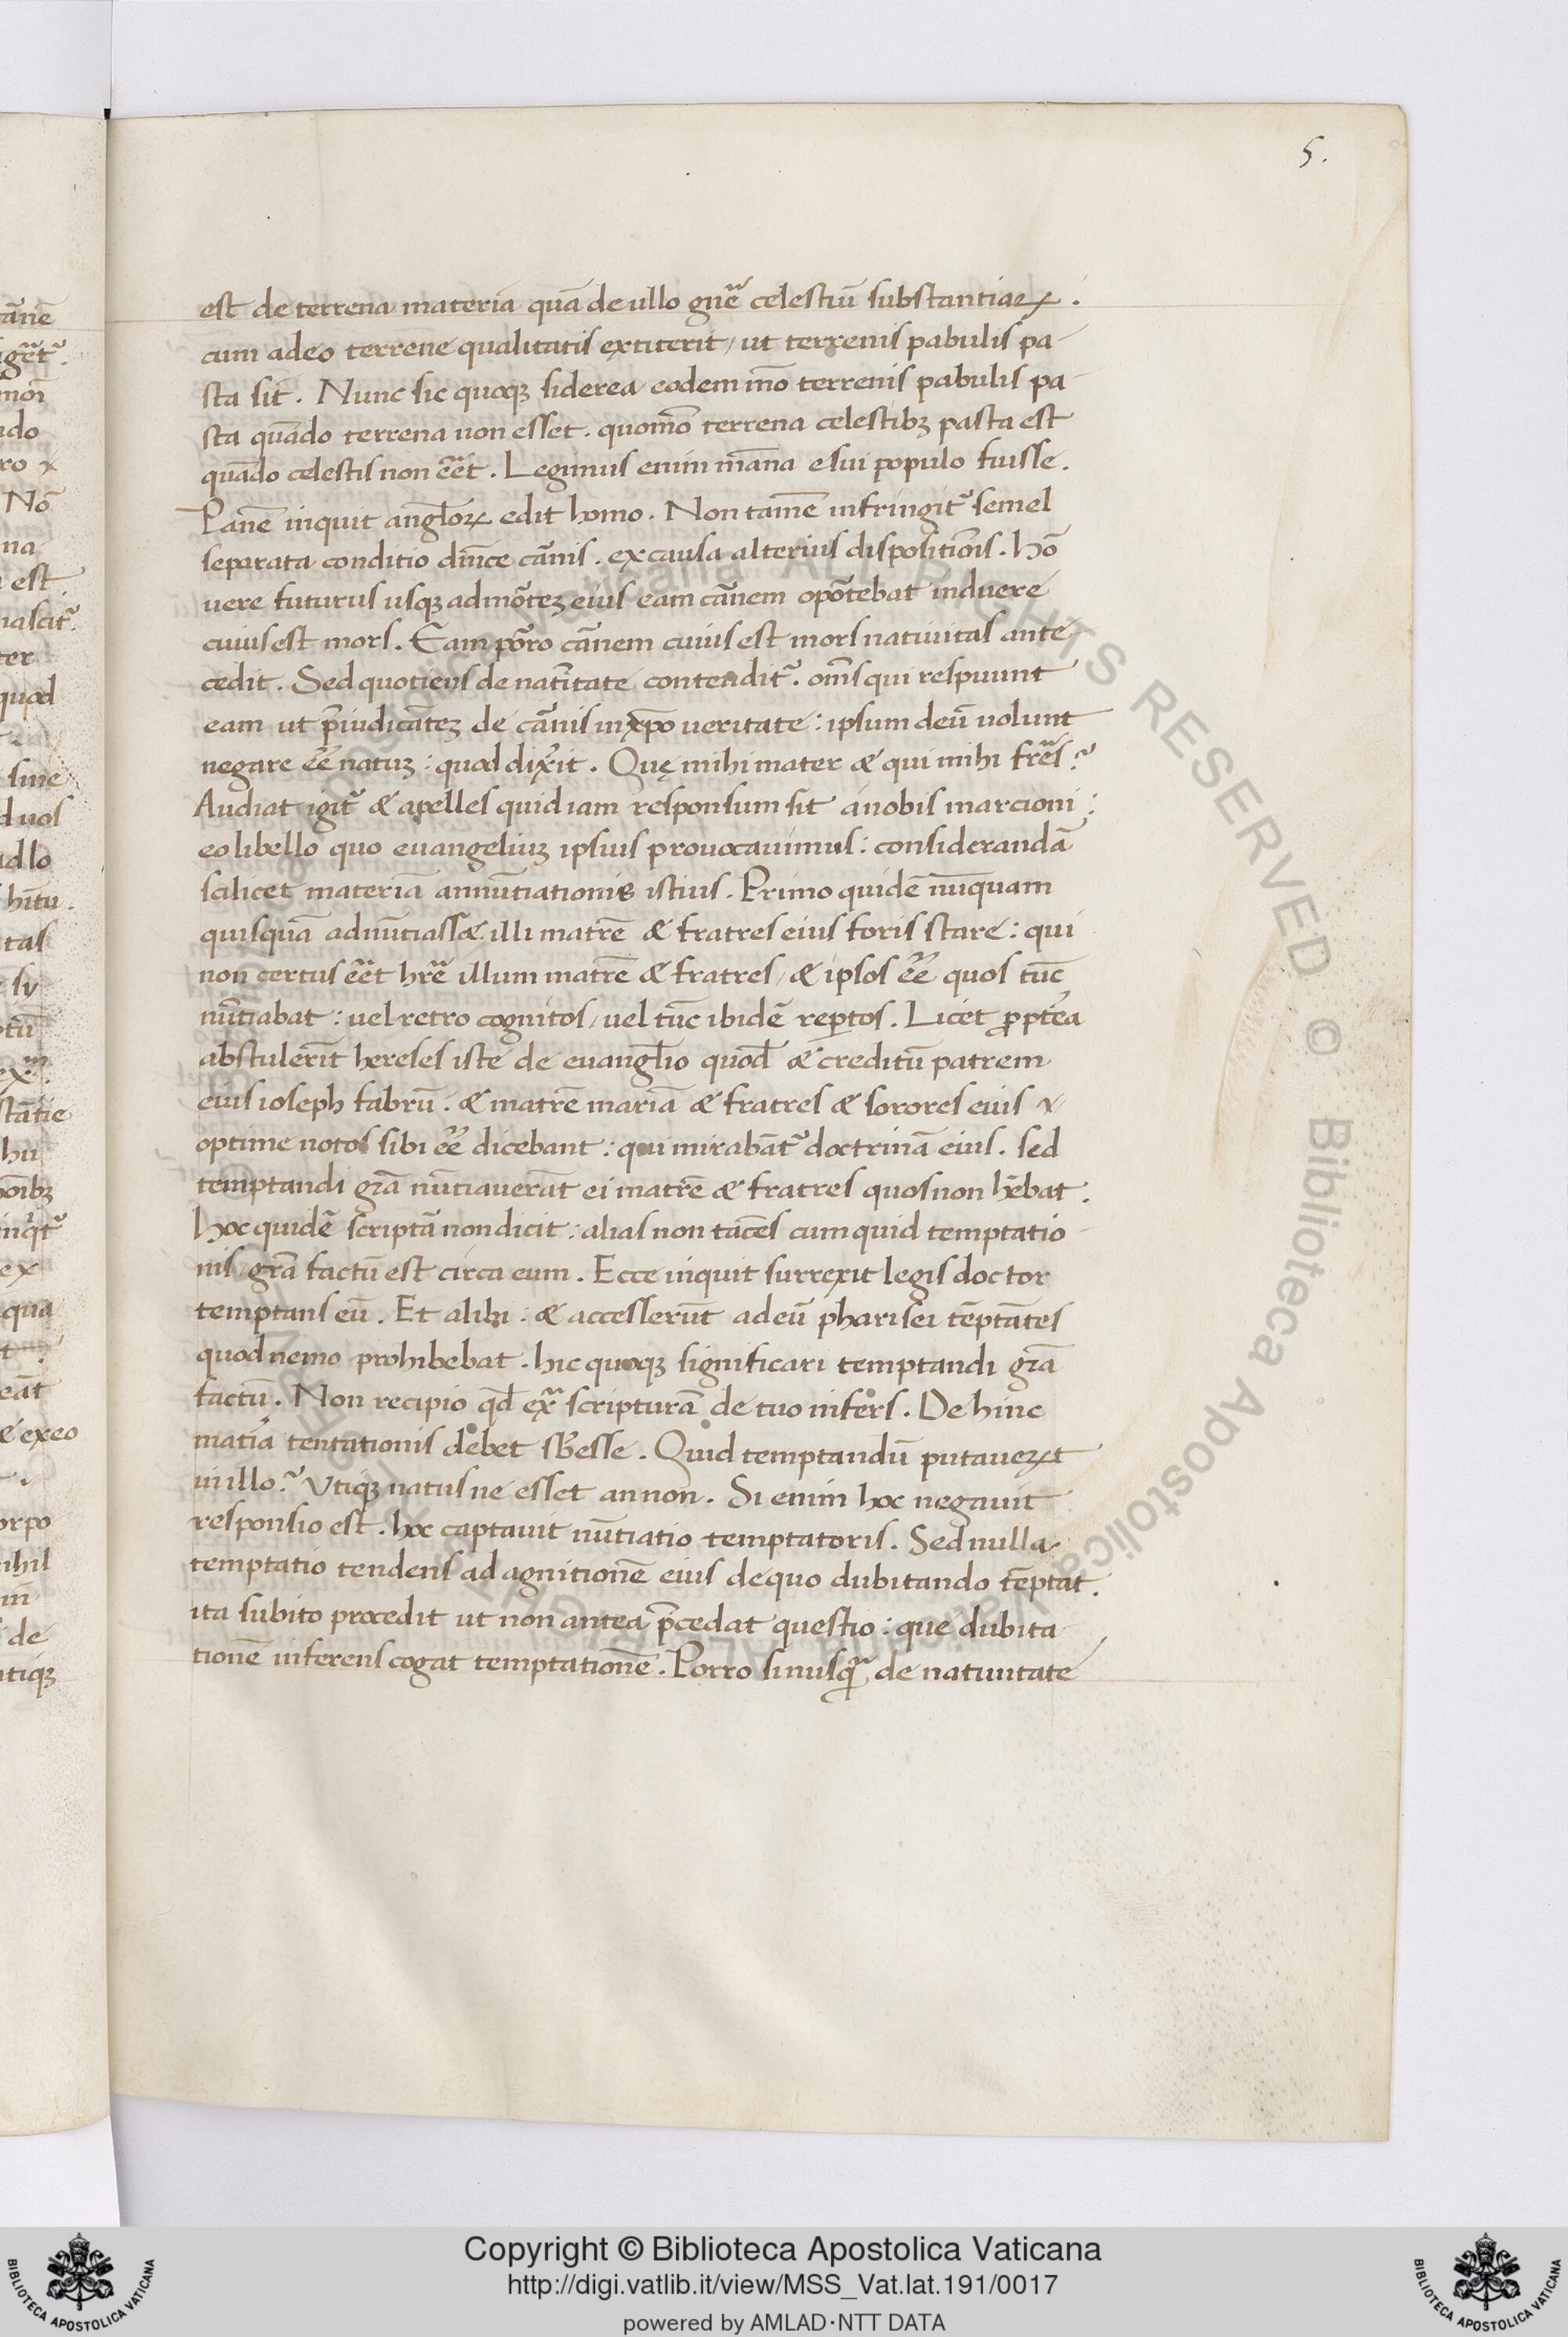 5.
est de terrena materia quā de ullo gn̄e celestiū substantiaꝝ.
cum adeo terrene qualitatis extiterit, ut terrenis pabulis pa-
sta sit. Nunc sic quoqꝫ siderea eodem mō terrenis pabulis pa-
sta quādo terrena non esset. quomō terrena celestibꝫ pasta est
quādo celestis non ēēt. Legimus enim māna esui populo fuisse.
Panē inquit angl̄oꝝ edit homo. Non tamē infringit᷑ semel
separata conditio dn̄ice cānis. ex causa alterius dispositiōis. hō
vere futurus usqꝫ ad mōteꝫ eius eam cānem opōtebat induere
cuius est mors. Eam pōro cānem cuius est mors natiuitas ante
cedit. Sed quotiens de nat̄itate contendit᷑. om̄s qui respuunt
eam ut p̄iudicāteꝫ de cānis in xp̄o veritate: ipsum deū uolunt
negare ēē natuꝫ: quod dix̄it. Quę mihi mater & qui mihi fr̄es?
Audiat igit᷑ & apelles quid iam responsum sit a nobis marcioni:
eo libello quo euangeliuꝫ ipsius prouocauimus: considerandā
scilicet materiā annūtiationis istius. Primo quidē nūquam
quisquā adnūtiass& illi matrē & fratres eius foris stare: qui
non certus ēēt hr̄e illum matrē & fratres, & ipsos ēē quos tūc
nūtiabat: uel retro cognitos, uel tūc ibidē reꝑtos. Licet ꝓpt̄ea
abstuler̄it hereses iste de euangl̄io quod̄ & creditū patrem
eius ioseph fabrū. & matrē mariā & fratres & sorores eius
optime notos sibi ēē dicebant: qui mirabāt᷑ doctrinā eius. sed
temptandi gr̄a nūtiauerāt ei matrē & fratres quos non hēbat.
hoc quidē scriptā non dicit: alias non tacēs cum quid temptatio
nis gr̄a factū est circa eum. Ecce inquit surrexit legis doctor
temptans eū. Et alibi: & accesserūt ad eū pharisei tēptātes
quod nemo prohibebat. hic quoqꝫ significari temptandi gr̄a
factū. Non recipio qd̄ ex̄ scripturā de tuo infers. De hinc
mat̄ia tentationis debet sb̄esse. Quid temptandū putaueꝝt
in illo? Vtiqꝫ natus ne esset an non. Si enim hoc negauit
responsio est. hoc captauit nūtiatio temptatoris. Sed nulla
temptatio tendens ad agnitionē eius de quo dubitando tēptat.
ita subito procedit ut non antea p̄cedat questio: que dubita
tionē inferens cogat temptationē. Porro si nusꝗ̄ de natiuitate
Copyright © Biblioteca Apostolica Vaticana
http://digi.vatlib.it/view/MSS_Vat.lat.191/0017
powered by AMLAD·NTT DATA